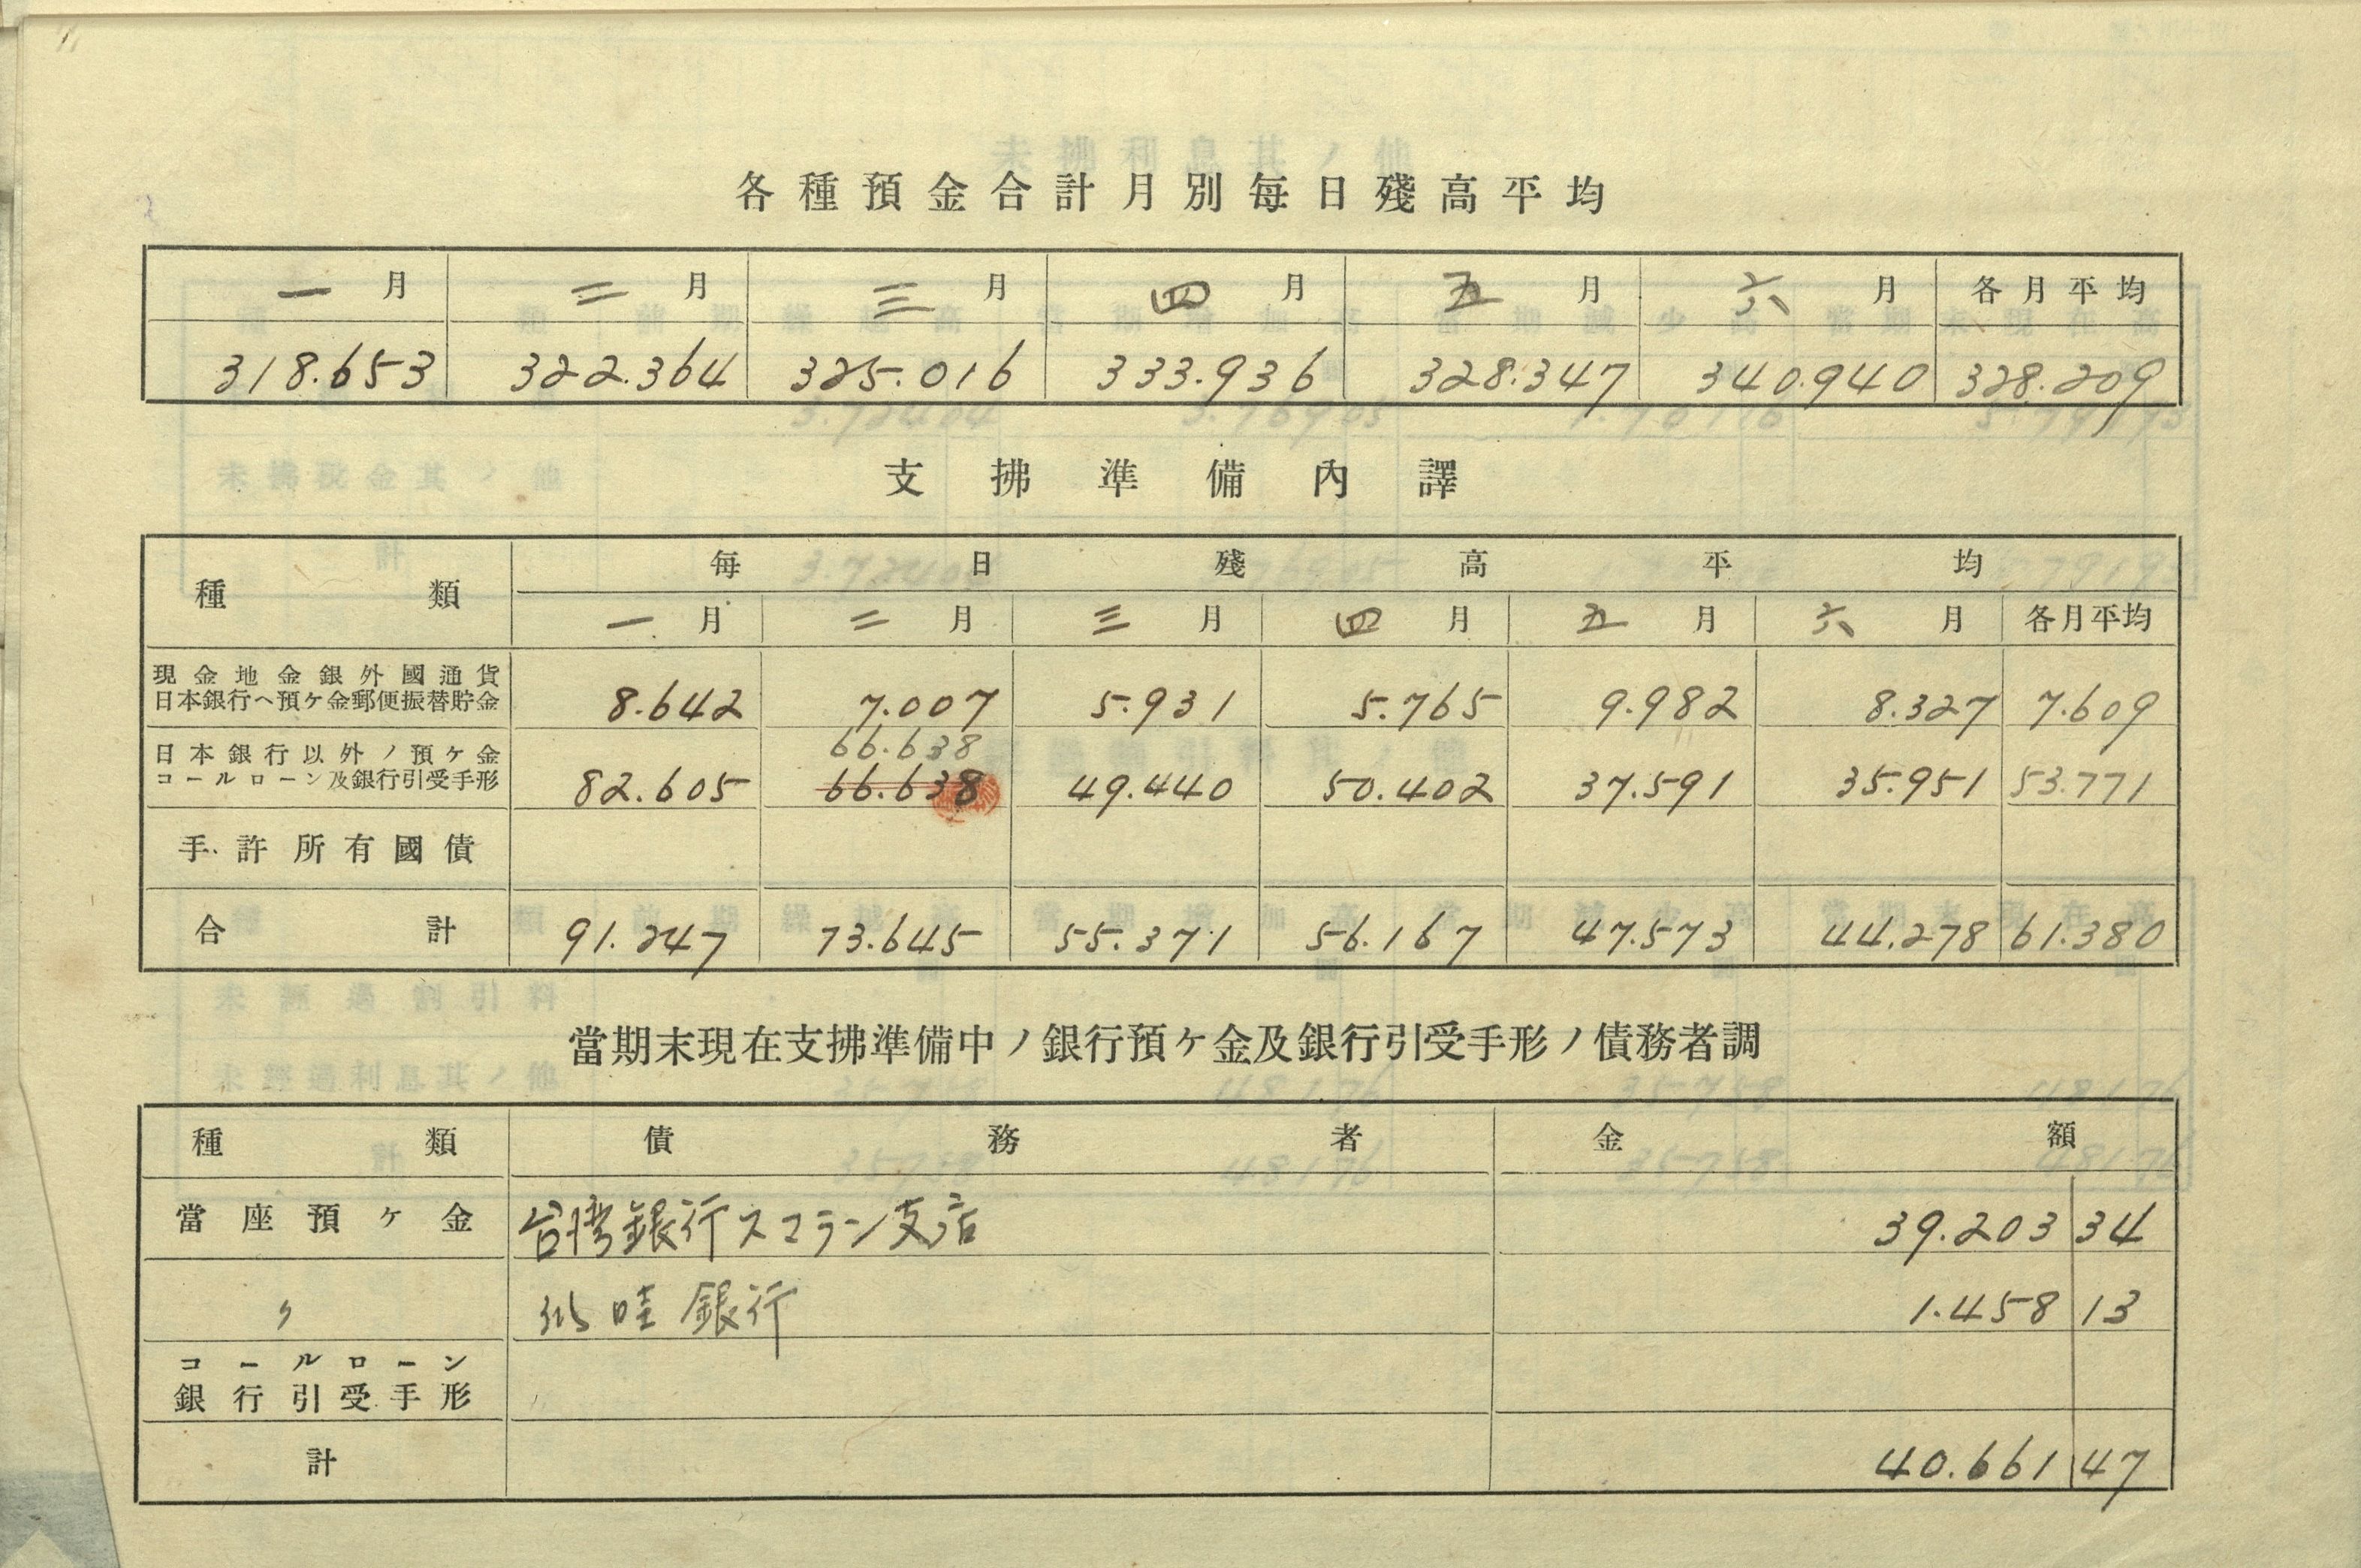 各種預金合計月別每日殘高平均
一月 二月 三月 四月 五月 六月 各月平均
318.653 322.364 325.016 333.936 328.347 340.940 328.209
支拂準備內譯
種類 每日殘高平均
一月 二月 三月 四月 五月 六月 各月平均
現金地金銀外國通貨
日本銀行ヘ預ケ金郵便振替貯金 8.642 7.007 5.931 5.765 9.982 8.327 7.609
日本銀行以外ノ預ケ金 66.638
コールローン及銀行引受手形 82.605 66.638 49.440 50.402 37.591 35.951 53.771
手許所有國債
合計 91.247 73.645 55.371 56.167 47.573 44.278 61.380
當期末現在支拂準備中ノ銀行預ケ金及銀行引受手形ノ債務者調
種類 債務者 金額
當座預ケ金 台湾銀行スマラン支店 39.203 34
〃 爪哇銀行 1.458 13
コールローン
銀行引受手形
計 40.661 47